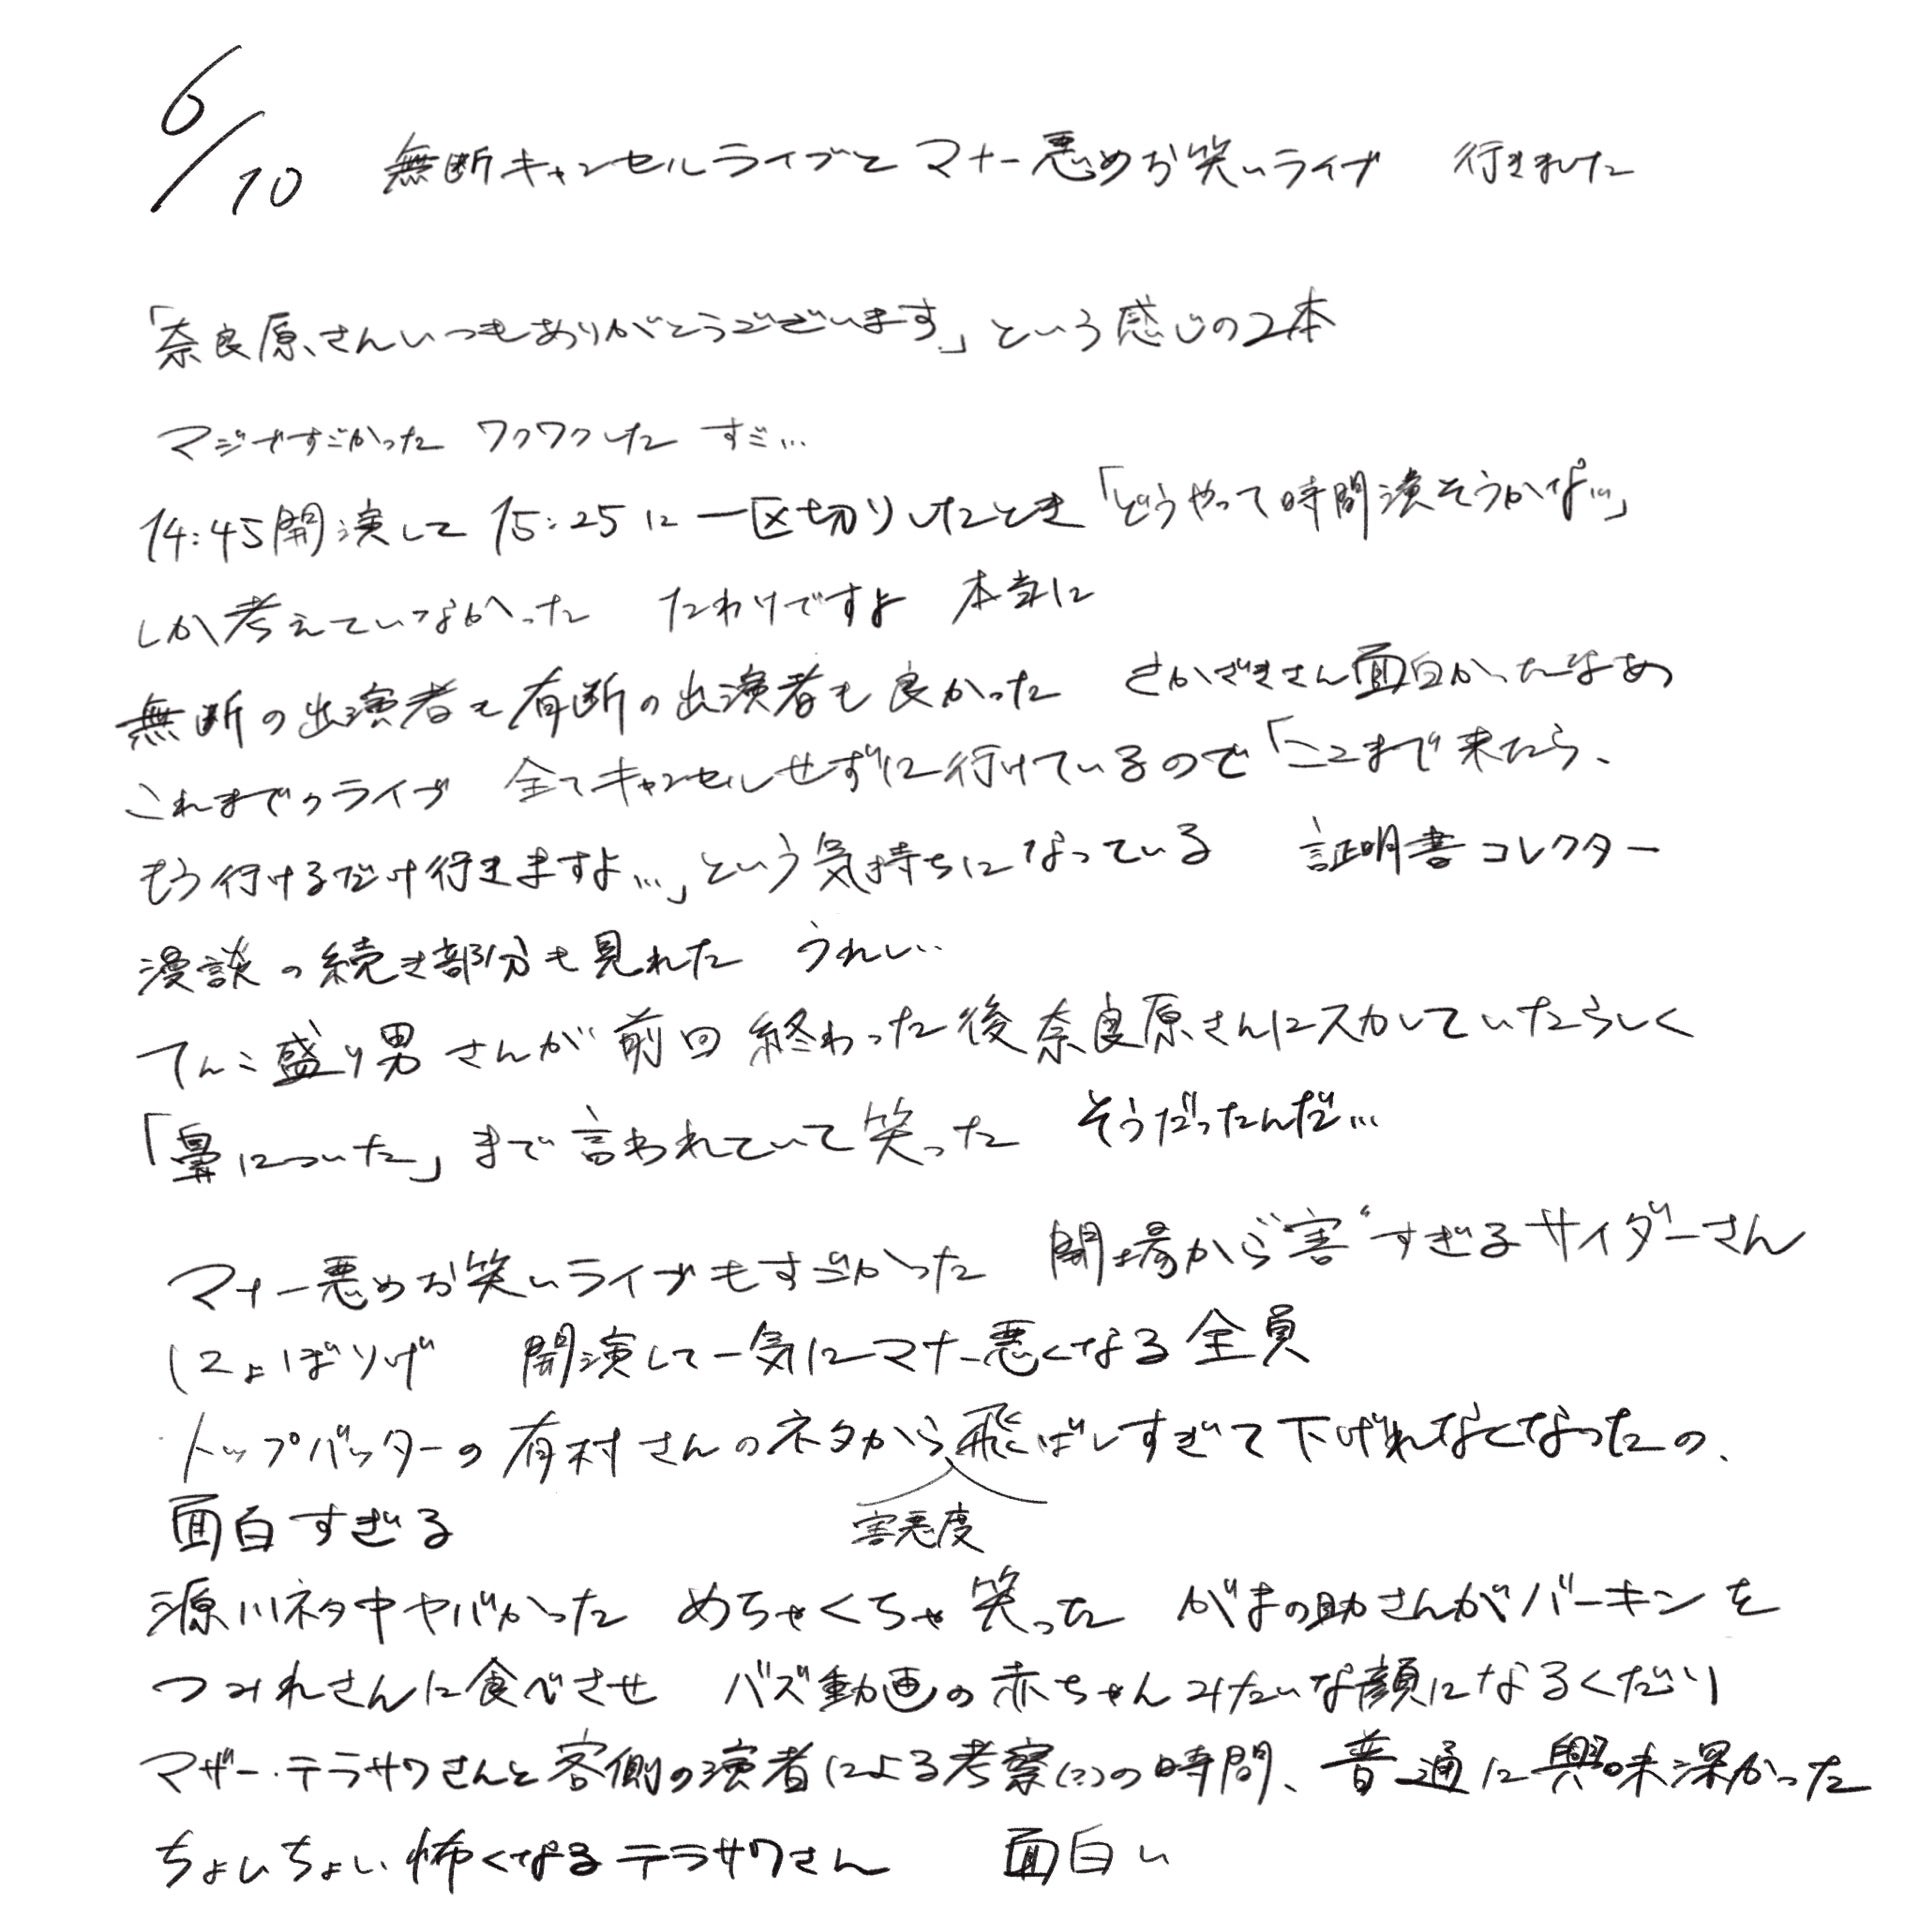 6/10 無断キャンセルライブとマナー悪めお笑いライブ 行きました
「奈良原さんいつもありがとうございます」という感じの2本
マジですごかった ワクワクした すご…
14:45開演して 15:25に一区切りしたとき「どうやって時間潰そうかな…」
しか考えていなかった たわけですよ 本当に
無断の出演者も有断の出演者も良かった さかざきさん面白かったなあ
これまでのライブ 全てキャンセルせずに行けているので「ここまで来たら、
もう行けるだけ行きますよ…」という気持ちになっている 証明書コレクター
漫談の続き部分も見れた うれし…
てんこ盛り男さんが前回終わった後奈良原さんにスカしていたらしく
「鼻についた」まで言われていて笑った そうだったんだ…
マナー悪めお笑いライブもすごかった 開場から"害"すぎるサイダーさん
にょぼりげ 開演して一気にマナー悪くなる全員
トップバッターの有村さんのネタから飛ばしすぎて下げれなくなったの、
害悪度
面白すぎる
源川ネタ中ヤバかった めちゃくちゃ笑った がまの助さんがバーキンを
つみれさんに食べさせ バズ動画の赤ちゃんみたいな顔になるくだり
マザー・テラサワさんと客側の演者による考察(?)の時間、普通に興味深かった
ちょいちょい怖くなるテラサワさん 面白い